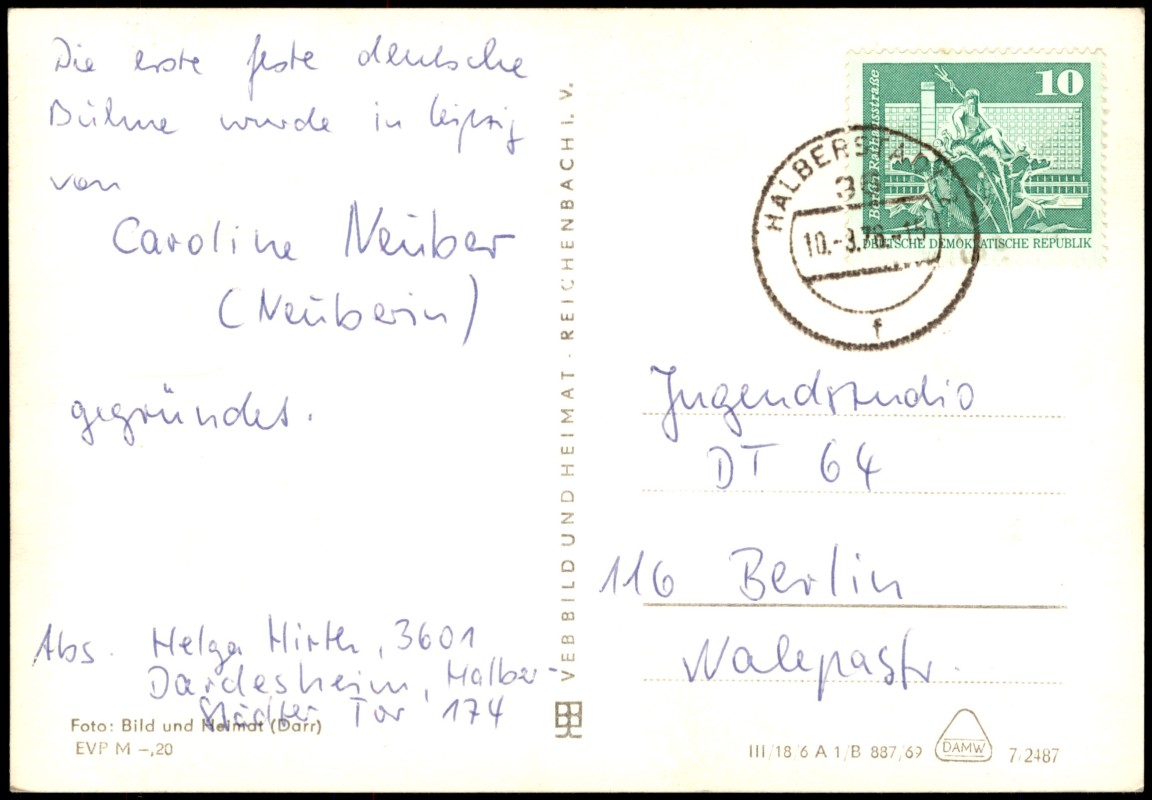 Die erste feste deutsche
Bühne wurde in Leipzig
von
Caroline Neuber
(Neuberin)
gegründet.
Abs. Helga Hirth, 3601
Dardesheim, Halber-
städter Tor 174
Foto: Bild und Heimat (Darr)
EVP M –,20
VEB BILD UND HEIMAT · REICHENBACH I. V.
10
Berlin Rathausstraße
DEUTSCHE DEMOKRATISCHE REPUBLIK
HALBERSTADT
36
10.-3.76.-15
f
Jugendstudio
DT 64
116 Berlin
Nalepastr.
III/18 6 A 1/B 887/69
DAMW
7/2487